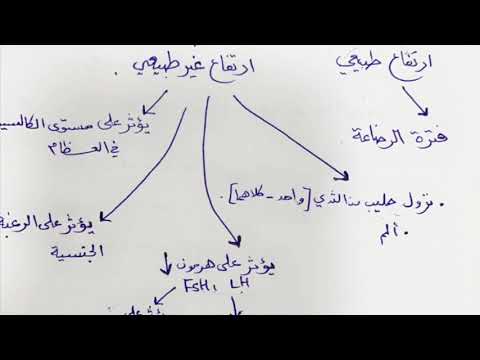 ارتفاع طبيعي
فترة الرضاعة
ارتفاع غير طبيعي
نزول حليب من الثدي [واحد - كلاهما].
ألم.
يؤثر على هرمون ↓
FSH, LH
يؤثر على الرغبة
الجنسية
يؤثر على مستوى الكالسيـ
في العظام